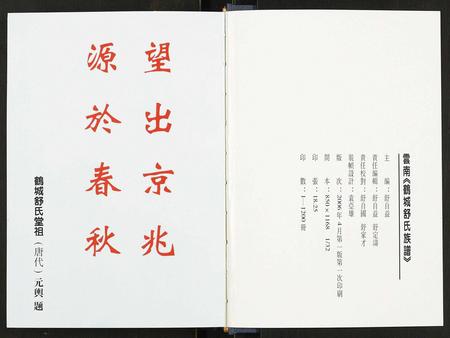 望出京兆
源於春秋
鶴城舒氏堂祖（唐代）元輿 題
雲南《鶴城舒氏族譜》
主編：舒自益
責任編輯：舒自益 舒定濤
責任校對：舒自國 舒家才
裝幀設計：袁亞雄
版次：2006年4月第一版第一次印刷
開本：850×1168 1/32
印張：18.25
印數：1—1200冊